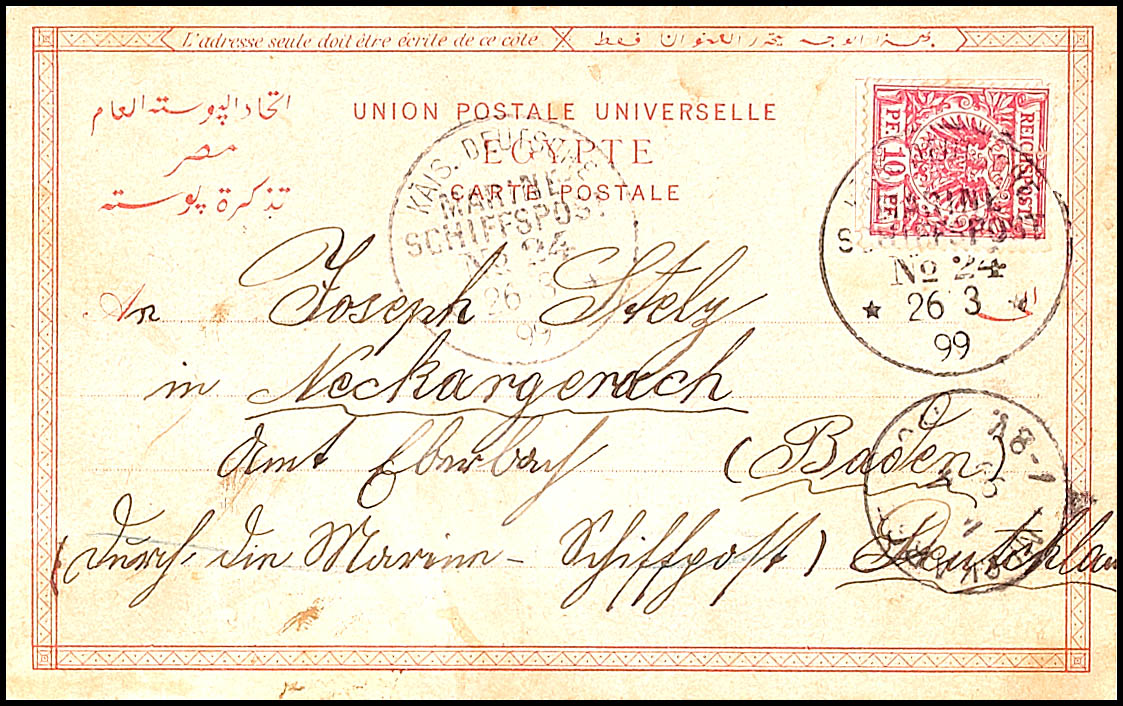 L'adresse seule doit être écrite de ce côté. بهذا الوجه يحرر العنوان فقط
اتحاد الپوسته العام
UNION POSTALE UNIVERSELLE
مصر
EGYPTE
تذكرة پوسته
CARTE POSTALE
REICHSPOST
PF. 10 PF.
KAIS. DEUTSCHE
MARINE-
SCHIFFSPOST
No 24
26 3
99
SCHIFFSPOST
No 24
★ 26 3 ★
99
An Joseph Stelz
in Neckargerach
Amt Eberbach (Baden)
(durch die Marine-Schiffpost) Deutschlan
8-1